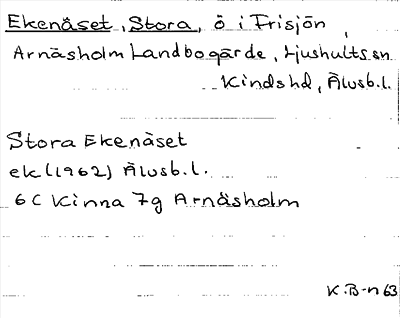 Ekenäset, Stora, ö i Frisjön,
Arnäsholm Landbogärde, Ljushults sn
Kinds hd, Älvsb.l.
Stora Ekenäset
ek (1962) Älvsb.l.
6C Kinna 7g Arnäsholm
K.B-n 63